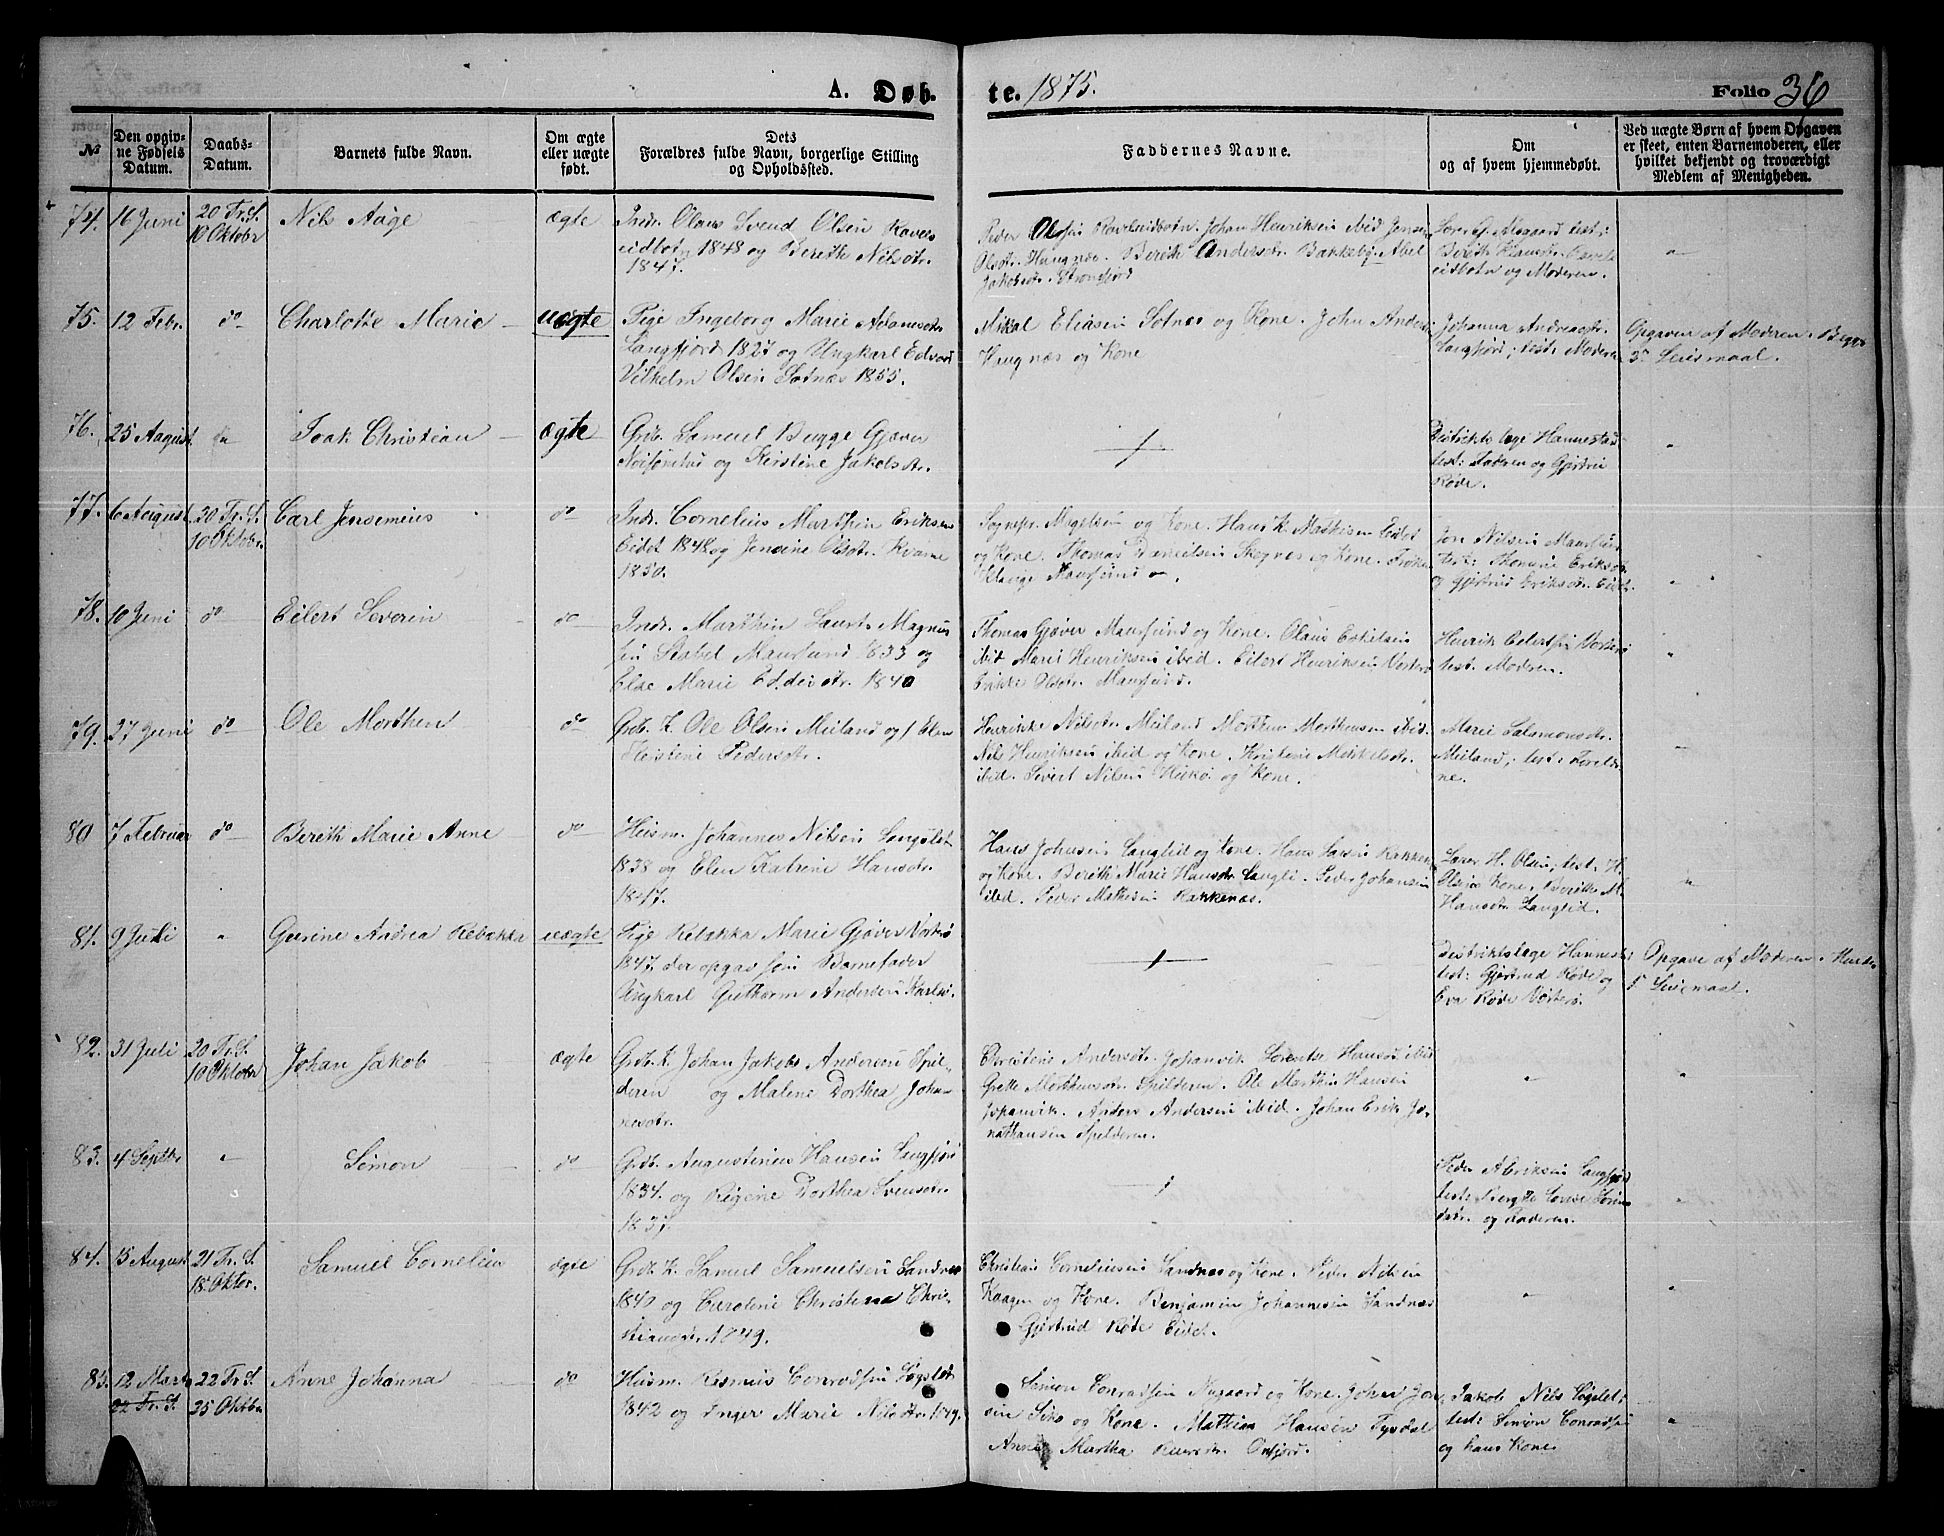 A. Døb-
te. 1875.
Folio 36
№
Den opgiv-
ne Fødsels
Datum.
Daabs-
Datum.
Barnets fulde Navn.
Om ægte
eller uægte
født.
Dets
Forældres fulde Navn, borgerlige Stilling
og Opholdssted.
Faddernes Navne.
Om
og af hvem hjemmedøbt.
Ved uægte Børn af hvem Opgaven
er skeet, enten Barnemoderen, eller
hvilket bekjendt og troværdigt
Medlem af Menigheden.
74. 16 Juni
20 Tr. S.
10 Oktobr
Nils Aage
ægte
Indr. Olaus Svend Olsen
1848 og Bereth Nilsdtr.
1847.
Peder Olsen Johan Henriksen ibid
Olsdtr. Haugnæs. Berith Andersdtr. Bakkeby. Abel
Jakobsdtr. Storfjord
test:
og Moderen.
75. 12 Febr.
do
Charlotte Marie
uægte
Pige Ingeborg Marie Adamsdtr.
Langfjord 1827 og Ungkarl Edvard
Vilhelm Olsen Sotnæs 1855.
Mikal Eliasen Sotnæs og Kone. John Anders.
Haugnæs og Kone
Johanna Andreasdtr.
Langfjord; test: Moderen
Opgaven af Moderen. Begges
3. Leiermaal.
76. 25 August
do
Isak Christian
ægte
Grdb. Samuel Bugge Gjøver
og Kirstine Jakobsdtr.
Distriktslæge Hannestad
test: Faderen og Gjertrud
Røde.
77. 6 August
20 Tr. S.
10 Oktobr.
Carl Jensenius
do
Indr. Cornelius Marthin Eriksen
Eidet 1848 og Jensine Olsdtr. Kvarne
1850.
Sognepr. og Kone. Hans K. Mathisen Eidet
og Kone. Thomas Danielsen Skognæs og Kone. Frøken
Klauge Maursund
Jon Nilsen Maursund
test: Thomine Eriksdtr.
og Gjertrud Eriksdtr. Eidet.
78. 10 Juni
do
Eilert Severin
do
Indr. Marthin Magnus-
sen Stabel Maursund 1833 og
Else Marie 1840
Thomas Gjøver Maursund og Kone. Olaus Eskelsen
ibid Marit Henriksen ibid. Eilert Henriksen Vorterø
Erikke Olsdtr. Maursund.
Henrik Eilertsen Vorterø
test. Moderen.
79. 27 Juni
do
Ole Morthen
do
Grdb. K. Ole Olsen Meiland og Elen
Kirstine Pedersdtr.
Henrikke Nilsdtr. Meiland Morthen Morthensen ibid.
Nils Henriksen ibid og Kone. Kristine Mikkelsdtr.
ibid. Sivert Nilsen Hukø og Kone.
Marie Salamonsdtr.
Meiland; test: Foreldre-
ne.
80 7 Februar
do
Bereth Marie Anne
do
Husm. Johannes Nilsen Langslet
1838 og Elen Katrine Hansdtr.
1847.
Hans Johnsen Langlid og Kone. Hans Larsen Rakkenæs
og Kone. Berith Marie Hansdtr Langli. Peder Johansen
ibid. Peder Mathisen Rakkenæs.
Larer H. Olsen, test: H.
Olsens Kone. Berithe M.
Hansdtr Langlid.
81. 9 Juli
Gurine Andrea Rebakka
uægte
Pige Rebakka Marie Gjøver Vorterø
1847. der opgav som Barnefader
Ungkarl Guthorm Andersen Karlsø.
Distriktslæge Hannestad
test: Gjertrud Røde og
Eva Røde Vorterø.
Opgave af Moderen. Hendes
1 Leiermaal.
82. 31 Juli
20 Tr. S.
10 Oktobr
Johan Jakob
ægte
Grdb. K. Johan Jakob Andersen Spil-
deren og Malene Dorthea Johan-
nesdtr.
Christine Andersdtr. Jøpanvik Lorentse Hansdtr ibid
Grethe Morthensdtr. Spilderen. Ole Marthin Hansen
Jøpanvik. Anders Andersen ibid. Johan Erik Jo-
nathansen Spilderen.
83. 4 Septbr
Simon
do
Grdb. Augustinius Hansen Langfjord
1834. og Regine Dorthea Svensdtr.
1837.
Peder Langfjord
test: og Faderen.
84. 15 August
21 Tr. S.
18. Oktbr.
Samuel Cornelius
ægte
Grdb. K. Samuel Samuelsen Sandnæs
1840 og Caroline Christina Chri-
stiansdtr. 1849.
Christian Corneliussen Sandnæs og Kone. Peder Nilsen
Kaagen og Kone. Benjamin Johannesen Sandnæs
Gjertrud Røde Eidet.
85. 12 Marts
22 Tr. S.
22 Tr. S.
25 Oktbr
Anne Johanna
do
Husm. Rasmus Conradsen Sogslet
1842 og Inger Marie Nilsdtr. 1849.
Simon Conradsen og Kone. Johan Jon-
sen og Kone. Mathias Hansen Tysdal
Anne Martha
Jakob Nils Sogslet;
test: Simon Conradsen
og hans Kone